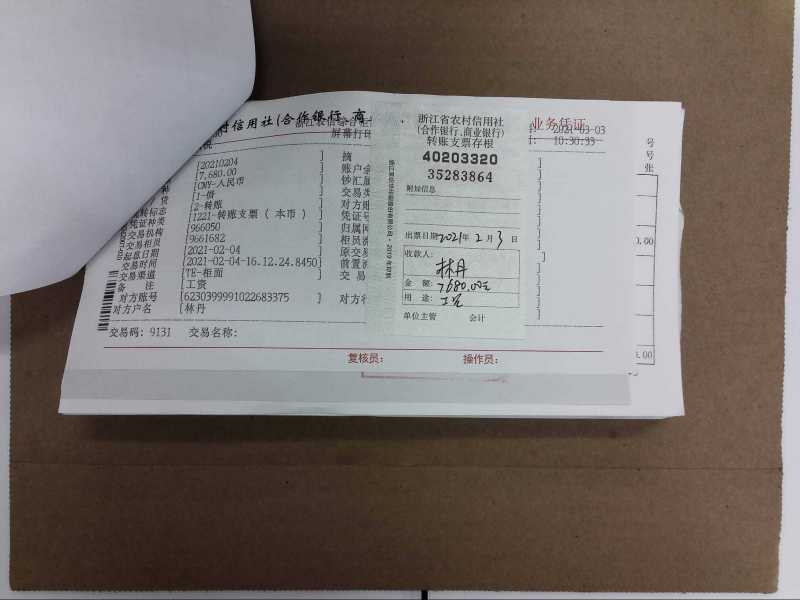 村信用社(合作银行、商
业务凭证
屏幕打印
2021-03-03
10:30:33
[20210204 ] 摘
[7,680.00 ] 账户余
[CNY-人民币 ] 钞汇属
[1-借 ] 交易类
[2-转账 ] 对方账
凭证种类 [1221-转账支票(本币) ] 凭证号
交易机构 [966050 ] 归属网
交易柜员 [9661682 ] 柜员流
起息日期 [2021-02-04 ] 原交易
交易时间 [2021-02-04-16.12.24.8450] 前置流
交易渠道 [TE-柜面 ] 交易
备 注 [工资
对方账号 [6230399991022683375 ] 对方行
对方户名 [林丹
交易码: 9131 交易名称:
复核员: 操作员:
浙江省农村信用社
(合作银行、商业银行)
转账支票存根
40203320
35283864
附加信息
出票日期2021年 2月 3日
收款人:
林丹
金 额: 7680.00元
用 途: 工资
单位主管 会计
号
号
张
0.00